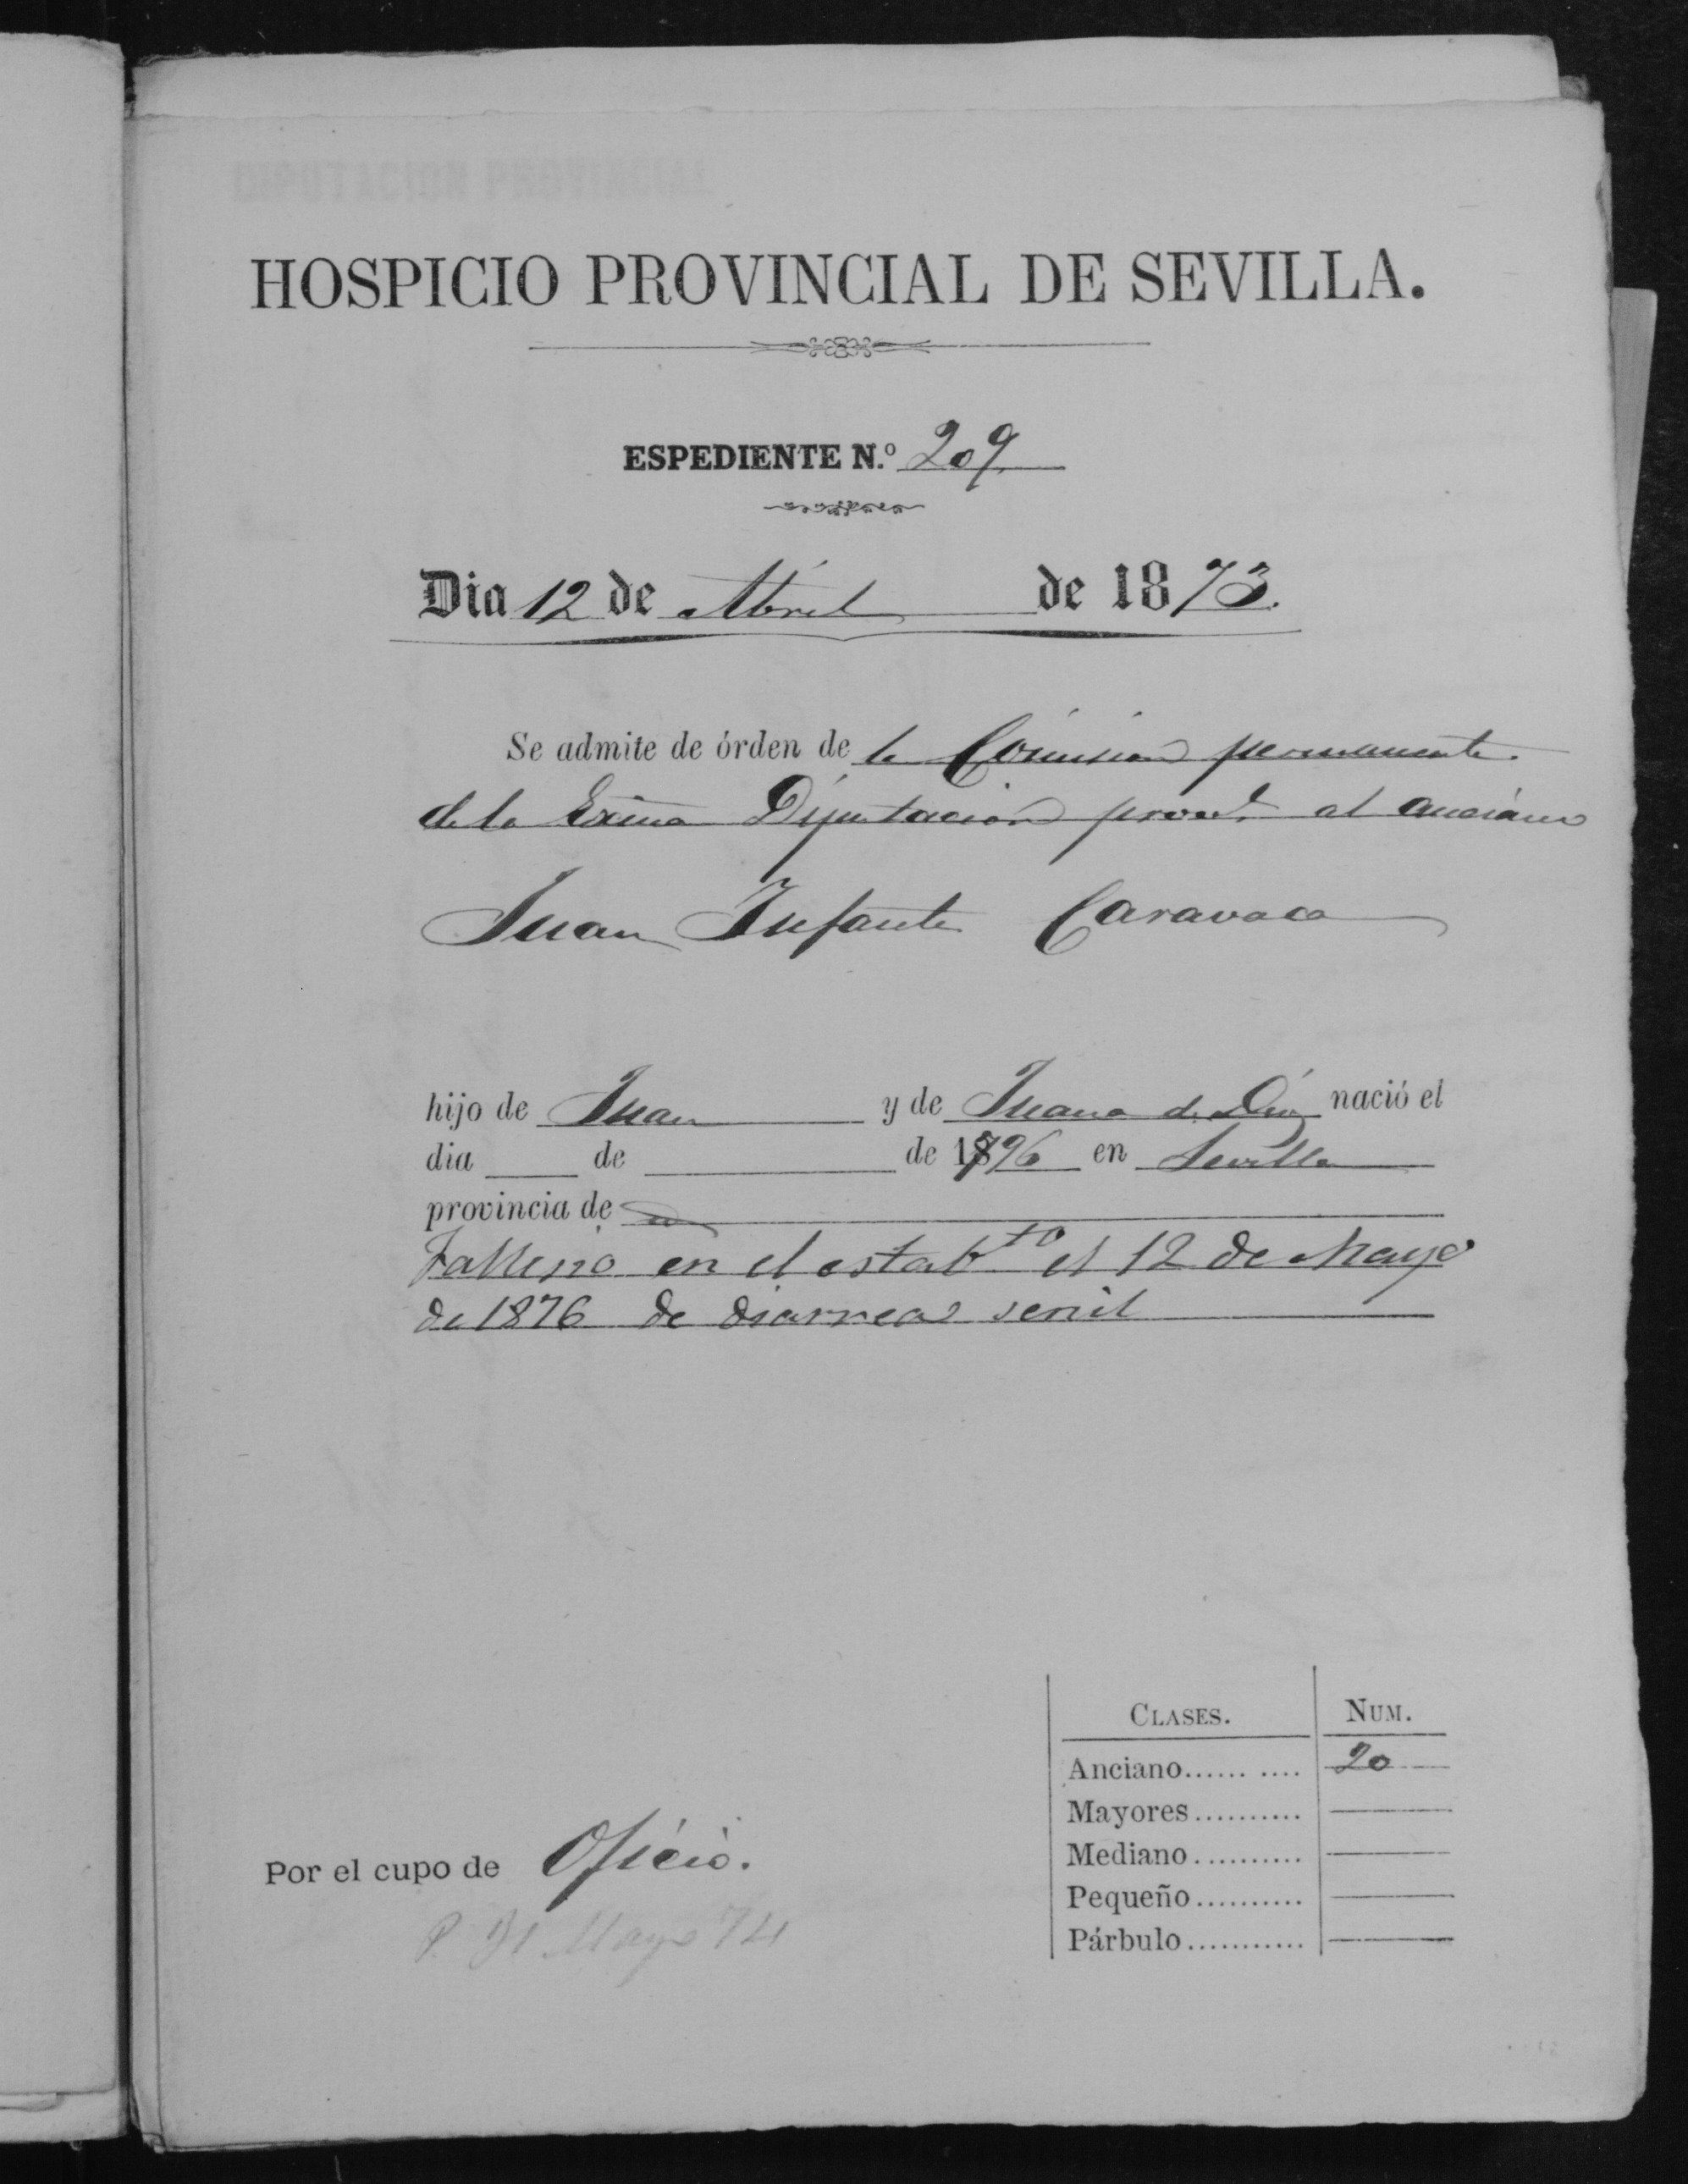 DIPUTACION PROVINCIAL
HOSPICIO PROVINCIAL DE SEVILLA.
ESPEDIENTE N.º 209
Dia 12 de Abril de 1873.
Se admite de órden de la Comision permanente
de la Exma Diputacion provl. al anciano
Juan Infante Caravaca
hijo de Juan y de Juana de Dios nació el
dia de de 1796 en Sevilla
provincia de id
Fallecio en el estabto el 12 de Mayo
de 1876 de diarrea senil
CLASES. NUM.
Anciano...... .... 20
Mayores..........
Mediano..........
Pequeño..........
Párbulo...........
Por el cupo de Oficio.
P. 31 Mayo 74